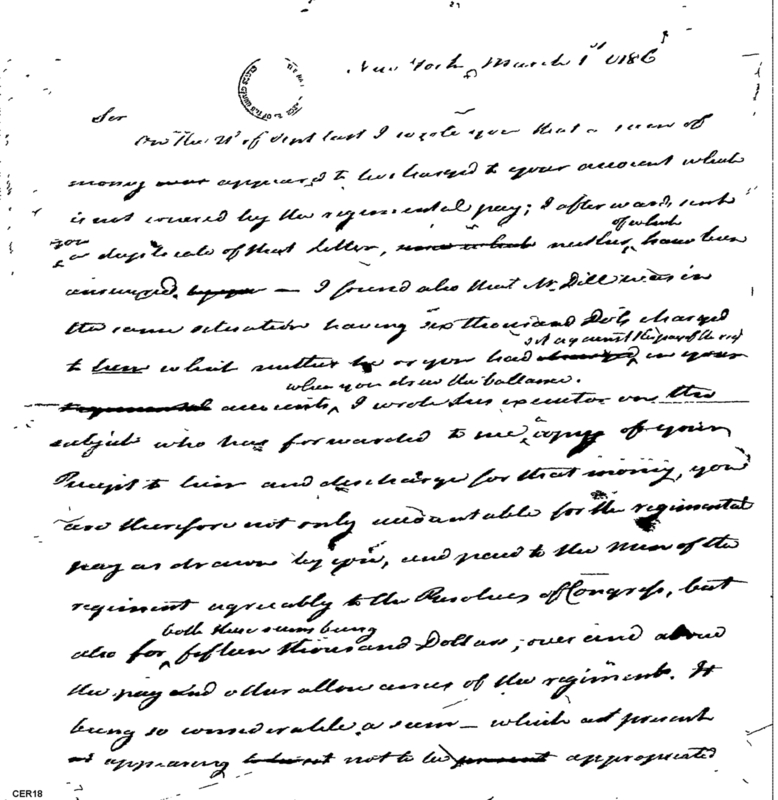 New York March 1st 1786
Sir
On the 21st of Sept last I wrote you that a sum of
money appeared to be charged to your account which
is not covered by the regimental pay; I afterwards sent
of which
you a duplicate of that letter, neither, have been
answered. — I found also that Mr. Dill was in
the same situation having six thousand Dols charged
set against the pay of the regt
to him which neither he or you had in your
when you drew the ballance.
accounts, I wrote his executor on the
subject who has forwarded to me copy of your
Receipt to him and discharge for that money, you
are therefore not only accountable for the regimental
pay as drawn by you, and paid to the men of the
regiment agreeably to the Resolves of Congress, but
both these sums being
also for fifteen thousand Dollars; over and above
the pay and other allowances of the regiment. It
being so considerable a sum — which at present
appearing not to be appropriated
CER18